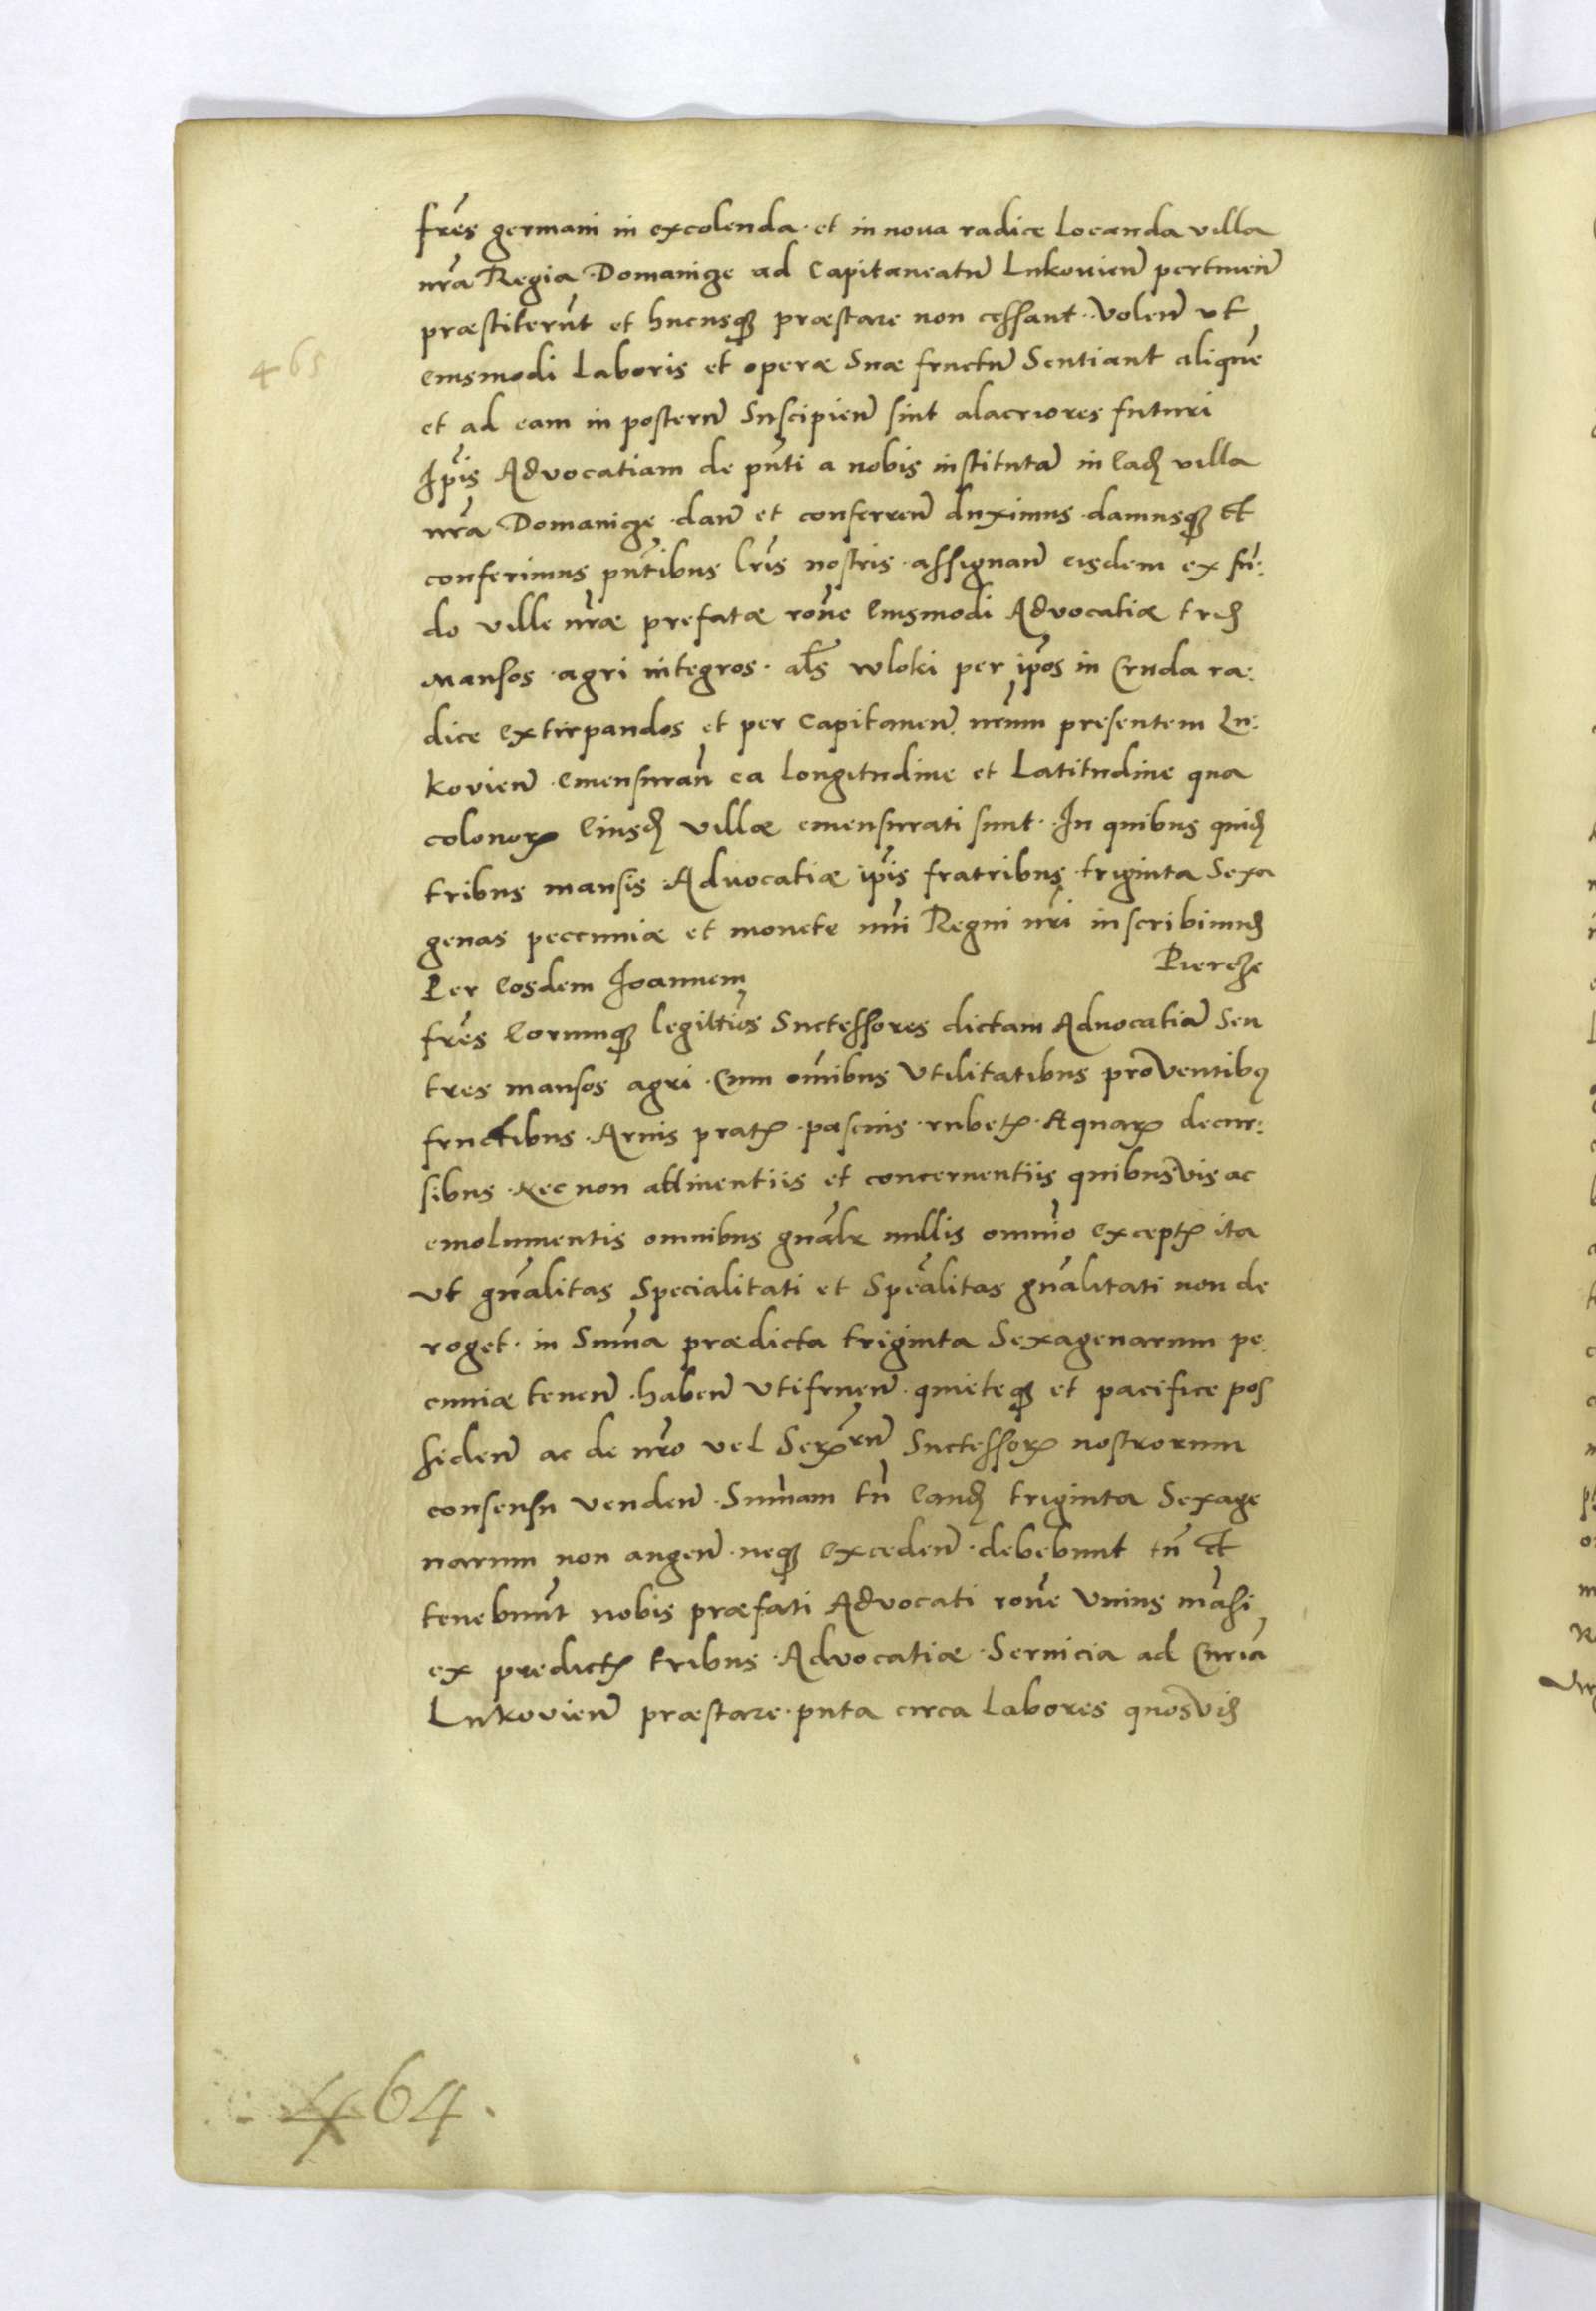 fr̃es germani in excolenda · et in noua radice locanda villa
nr̃a Regia Domanicze ad Capitaneatu᷉ Lukouien᷉ pertinen᷉
præstiterũt et hucusq̃ præstare non cessant · Volen᷉ vt
eiusmodi laboris et operæ Suæ fructu᷉ Sentiant alique᷉
465
et ad eam in posteru᷉ Suscipien᷉ sint alacriores futuri
Ip̃is Advocatiam de pñti a nobis institutã in Eadȝ villa
nr̃a Domanicze · dan᷉ et conferren᷉ duximus · damusq̃ et
conferimus pñtibus lr̃is nostris · assignan᷉ eisdem ex fũ:
do ville nr̃æ prefatæ rõne Eiusmodi Advocatiæ tres
mansos · agri integros · al̃s wloki per ip̃os in Cruda ra:
dice extirpandos et per Capitaneu᷉ nr̃um presentem Lu:
kovien᷉ · Emensuran᷉ ea longitudine et latitudine qua
colonorꝝ Eiusdȝ villæ emensurati sunt · In quibus quidȝ
tribus mansis · Advocatiæ ip̃is fratribus · triginta Sexa
genas peccuniæ et monete nũi Regni nr̃i inscribimus
Per Eosdem Joannem Piercze
fr̃es Eorumq̃ legittĩos Successores dictam Advocatiã Seu
tres mansos agri · Cum om̃ibus Vtilitatibus proventibꝯ
fructibus · Aruis pratꝭ · pascuis · rubetꝭ · Aquarꝝ decur:
sibus · Nec non attinentiis et concernentiis quibusvis ac
emolumentis omnibus gñalr nullis omnĩo Exceptꝭ ita
vt gñalitas Specialitati et Spẽalitas gñalitati non de
roget · in Sum̃a prædicta triginta Sexagenarum pe
cuniæ tenen᷉ · haben᷉ vtifruen᷉ · quieteq̃ et pacifice pos
siden᷉ ac de nr̃o vel Serꝝru᷉ Successorꝝ nostrorum
consensu venden᷉ · Sum̃am tñ Eandȝ triginta Sexage
narum non augen᷉ · neq̃ Exceden᷉ · debebunt tñ et
tenebunt nobis præfati Advocati rõne Vnius mãsi
ex predictꝭ tribus · Advocatiæ · Seruicia ad Curiã
Lukovien᷉ præstare · puta circa labores quosvis
464.